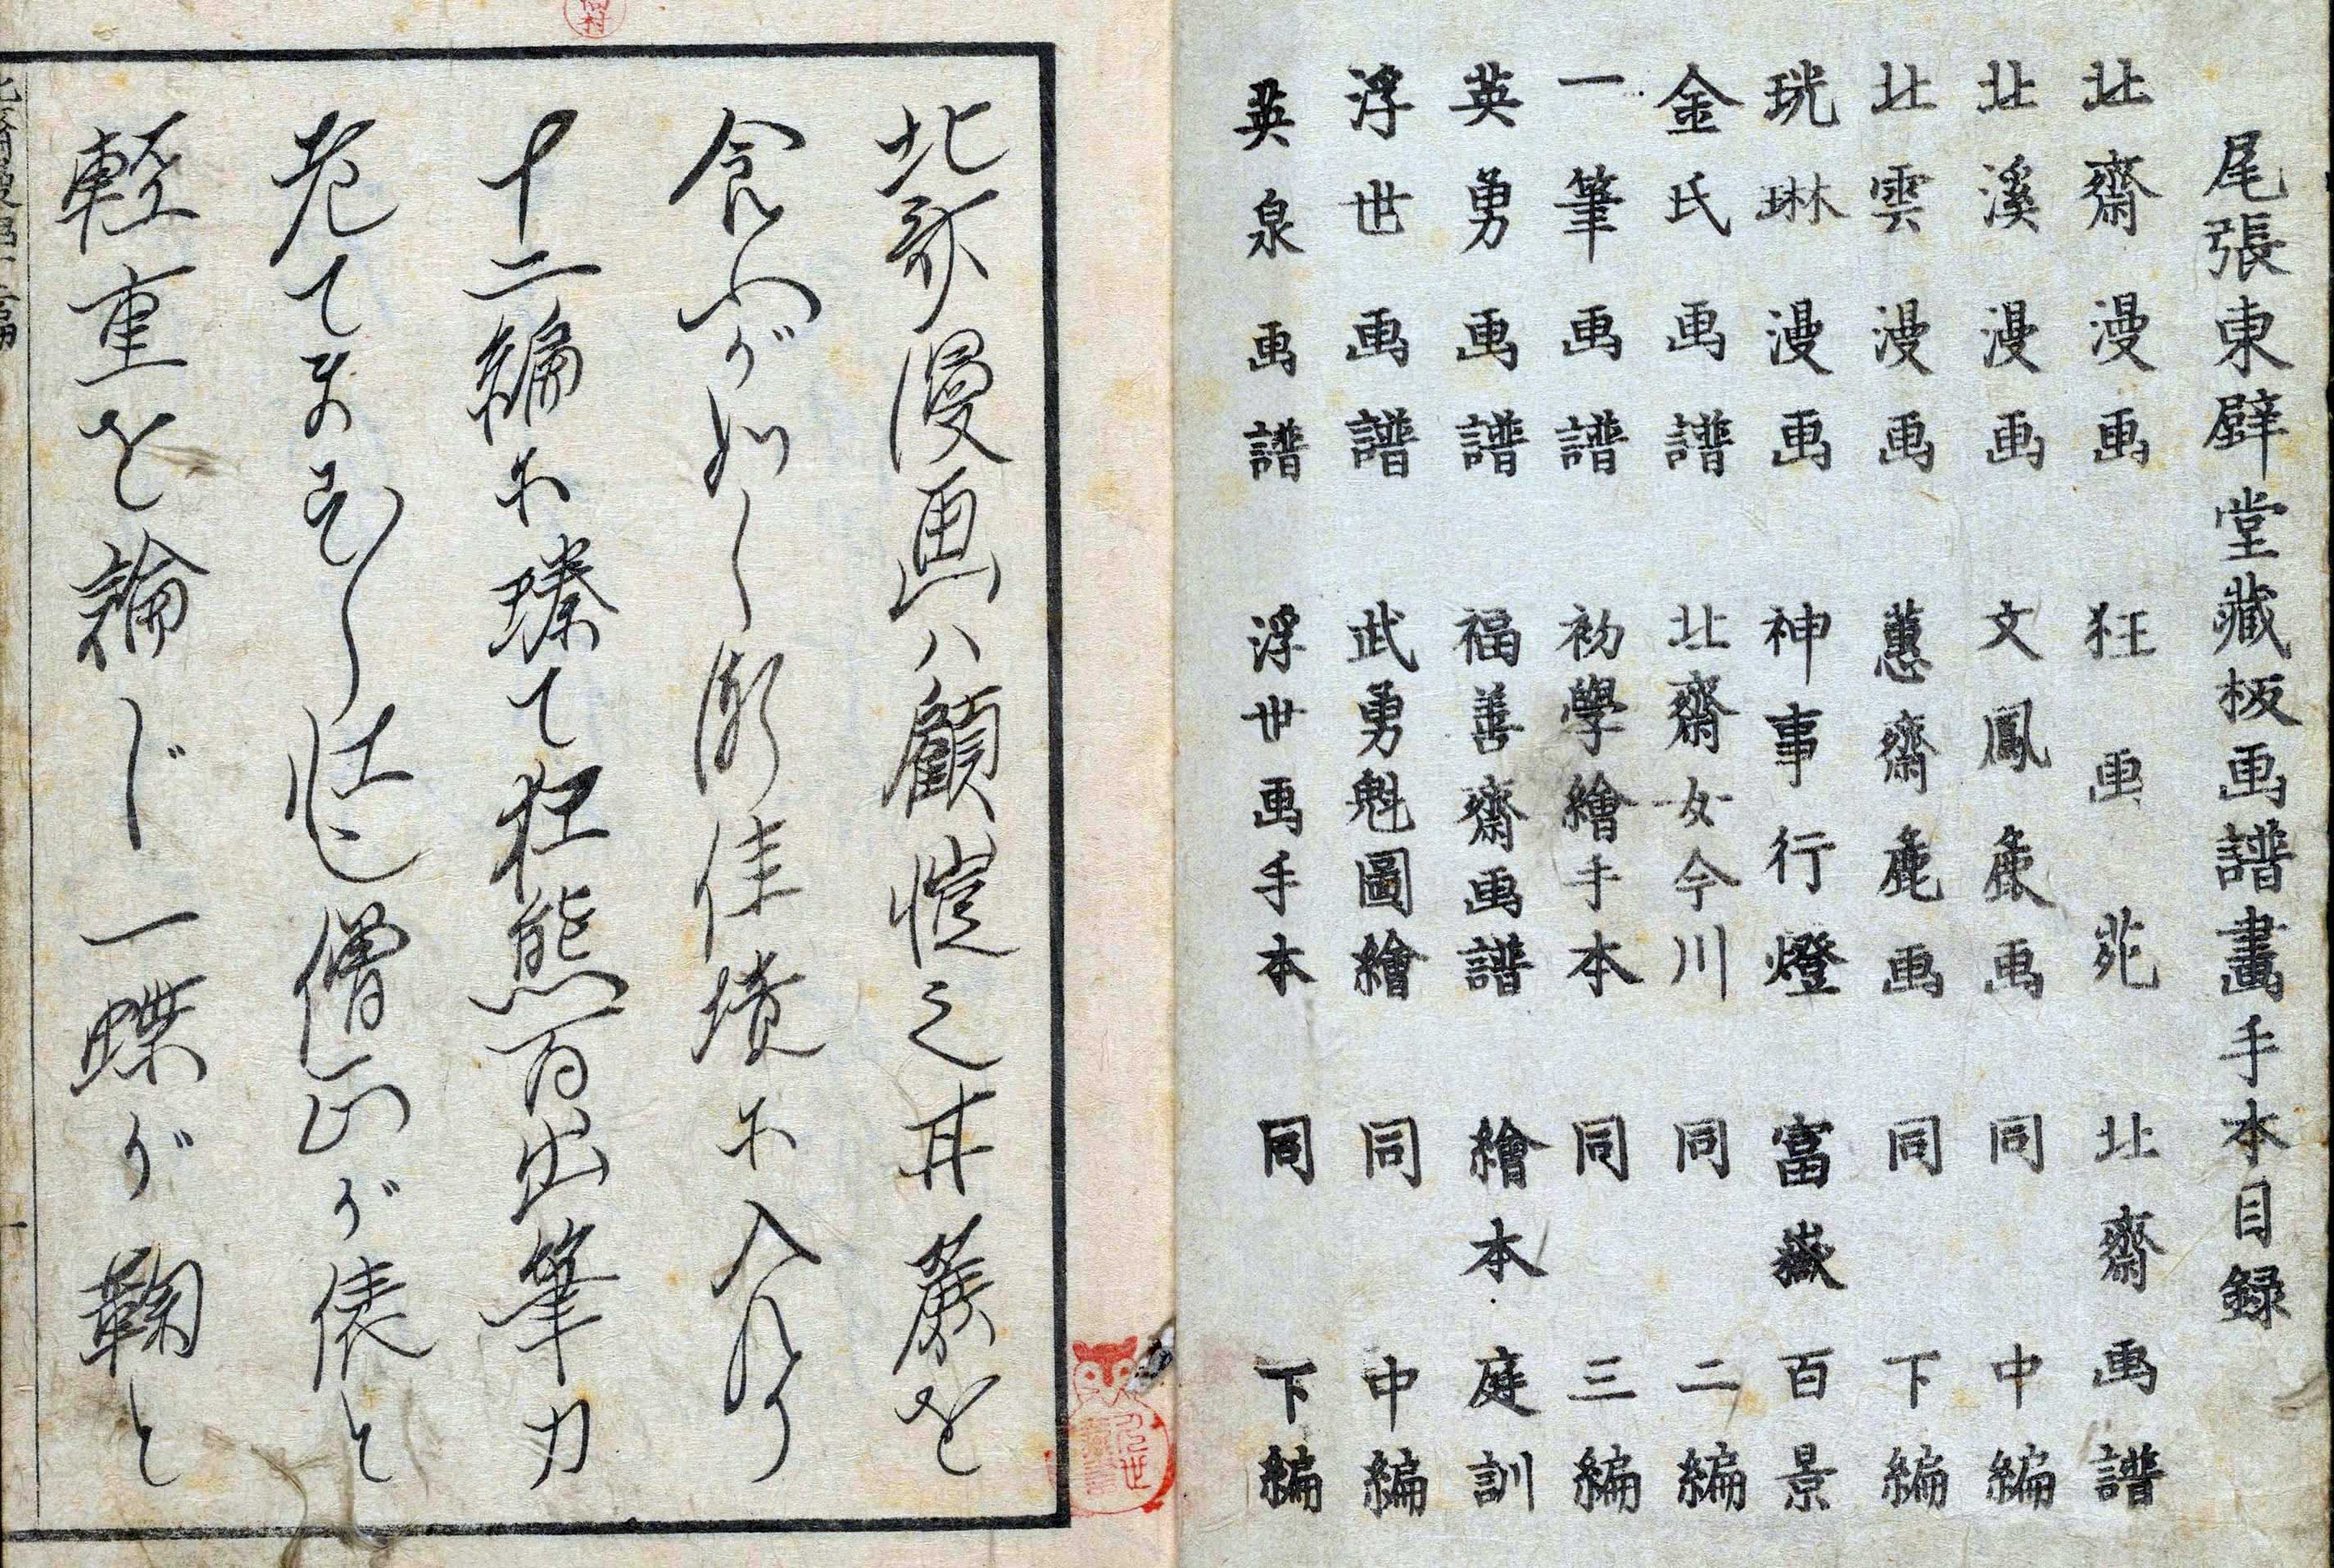 尾張東壁堂藏板画譜畫手本目録
北齋漫画 狂画苑 北齋画譜
北溪漫画 文鳳麁画 同 中編
北雲漫画 蕙齋麁画 同 下編
珖琳漫画 神事行燈 富嶽百景
金氏画譜 北齋女今川 同 二編
一筆画譜 初學繪手本 同 三編
英勇画譜 福善齋画譜 繪本庭訓
浮世画譜 武勇魁圖繪 同 中編
英泉画譜 浮世画手本 同 下編
北斎漫画ハ顧愷之甘蔗を
食ふが如し漸佳境に入のり
十二編に臻て狂態百出筆力
老てます〳〵壮也僧正が俵と
軽重を論じ一蝶が鞠と